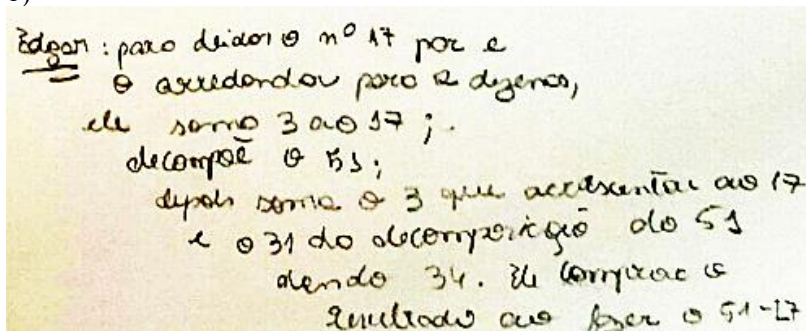 Edgar: para deidor o nº 17 por e
o arredondar para 2 dezenas,
ele soma 3 ao 17;
decompõe o 51;
depois soma o 3 que acrescentar ao 17
e o 31 da decomposição do 51
dando 34. Ele compara o
resultado ao fazer o 51-17